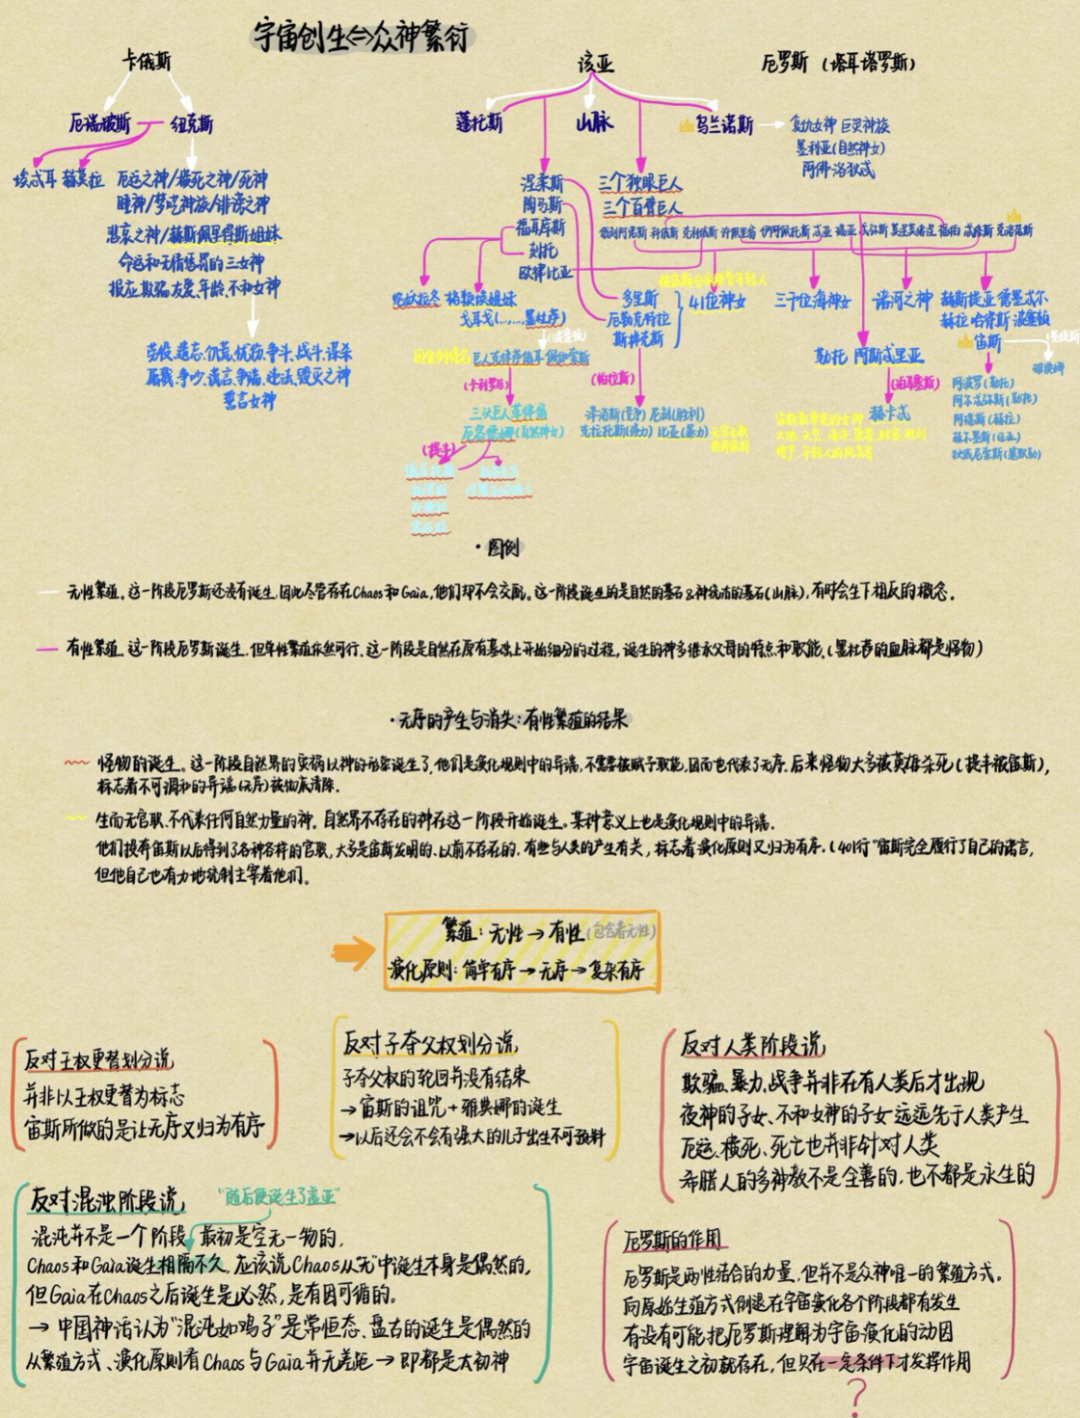 宇宙创生⇔众神繁衍
卡俄斯
该亚
厄罗斯（塔耳塔罗斯）
厄瑞玻斯 — 纽克斯
蓬托斯
山脉
乌兰诺斯
复仇女神 巨灵神族
墨利亚(自然神女)
阿佛洛狄忒
埃忒耳 赫莫拉
厄运之神/横死之神/死神
睡神/梦呓神族/诽谤之神
悲哀之神/赫斯佩里得斯姐妹
命运和无情惩罚的三女神
报应、欺骗、友爱、年龄、不和女神
劳役、遗忘、饥荒、忧伤、争斗、战斗、谋杀
屠戮、争吵、谎言、争端、违法、毁灭之神
誓言女神
涅柔斯
陶马斯
福耳库斯
刻托
欧律比亚
三个独眼巨人
三个百臂巨人
41位神女
三千位海神女
诸河之神
多里斯
厄勒克特拉
戈耳戈(……,墨杜萨)
勒托 阿斯忒里亚
宙斯
(帕拉斯)
泽洛斯(竞争) 尼刻(胜利)
克拉托斯(强力) 比亚(暴力)
赫卡忒
三头巨人革律翁
(提丰)
阿波罗(勒托)
阿瑞斯(赫拉)
·图例
— 无性繁殖。这一阶段厄罗斯还没有诞生，因此尽管存在Chaos和Gaia，他们却不会交配。这一阶段诞生的是自然的基石&神统治的基石(山脉)，有时会生下相反的概念。
— 有性繁殖。这一阶段厄罗斯诞生，但单性繁殖依然可行。这一阶段是自然在原有基础上开始细分的过程，诞生的神多继承父母的特点和职能。(墨杜萨的血脉都是怪物)
·无序的产生与消失：有性繁殖的结果
怪物的诞生。这一阶段自然界的灾祸以神的形象诞生了，他们是演化规则中的异端，不需要被赋予职能，因而也代表了无序。后来怪物大多被英雄杀死(提丰被宙斯)，
标志着不可调和的异端(无序)被彻底清除。
生而无官职、不代表任何自然力量的神。自然界不存在的神在这一阶段开始诞生。某种意义上也是演化规则中的异端。
他们投奔宙斯以后得到了各种各样的官职，大多是宙斯发明的、以前不存在的，有些与人类的产生有关，标志着演化原则又归为有序。(401行“宙斯完全履行了自己的诺言，
但他自己也有力地统制主宰着他们。
繁殖：无性→有性(包含着无性)
演化原则：简单有序→无序→复杂有序
反对王权更替划分说
并非以王权更替为标志
宙斯所做的是让无序又归为有序
反对子夺父权划分说
子夺父权的轮回并没有结果
→宙斯的诅咒+雅典娜的诞生
→以后还会不会有强大的儿子出生不可预料
反对人类阶段说
欺骗、暴力、战争并非在有人类后才出现
夜神的子女、不和女神的子女远远先于人类产生
厄运、横死、死亡也并非针对人类
希腊人的多神教不是全善的，也不都是永生的
反对混沌阶段说 “随后便诞生了盖亚”
混沌并不是一个阶段，最初是空无一物的，
Chaos和Gaia诞生相隔不久，应该说Chaos从“无”中诞生本身是偶然的，
但Gaia在Chaos之后诞生是必然，是有因可循的。
→ 中国神话认为“混沌如鸡子”是常恒态、盘古的诞生是偶然的
从繁殖方式、演化原则看Chaos与Gaia并无差距→即都是太初神
厄罗斯的作用
厄罗斯是两性结合的力量，但并不是众神唯一的繁殖方式。
向原始生殖方式倒退在宇宙演化各个阶段都有发生
有没有可能把厄罗斯理解为宇宙演化的动因
宇宙诞生之初就存在，但只在一定条件下才发挥作用
？